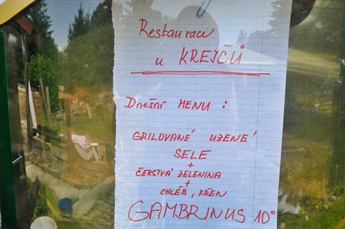 Restaurace
u KREJČŮ
Dnešní MENU :
GRILOVANÉ UZENÉ
SELE
+
ČERSTVÁ ZELENINA
+
CHLÉB, KŘEN
GAMBRINUS 10°